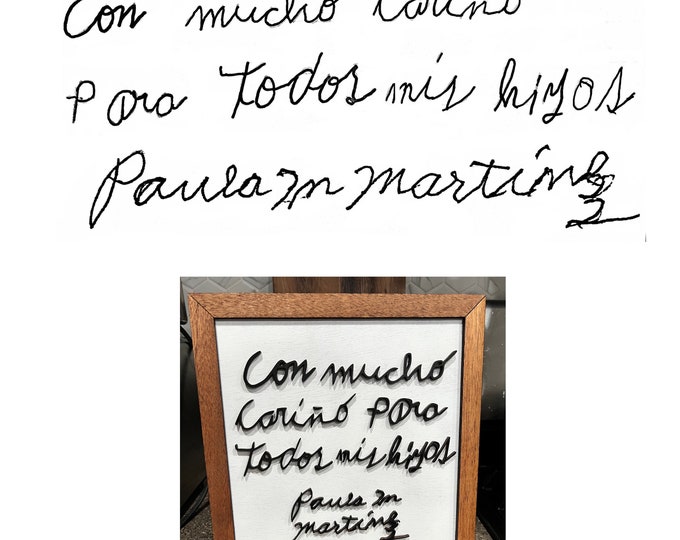 Con mucho Cariño
para Todos mis hijos
Paula M Martínez
Con mucho
Cariño para
Todos mis hijos
Paula M
Martínez